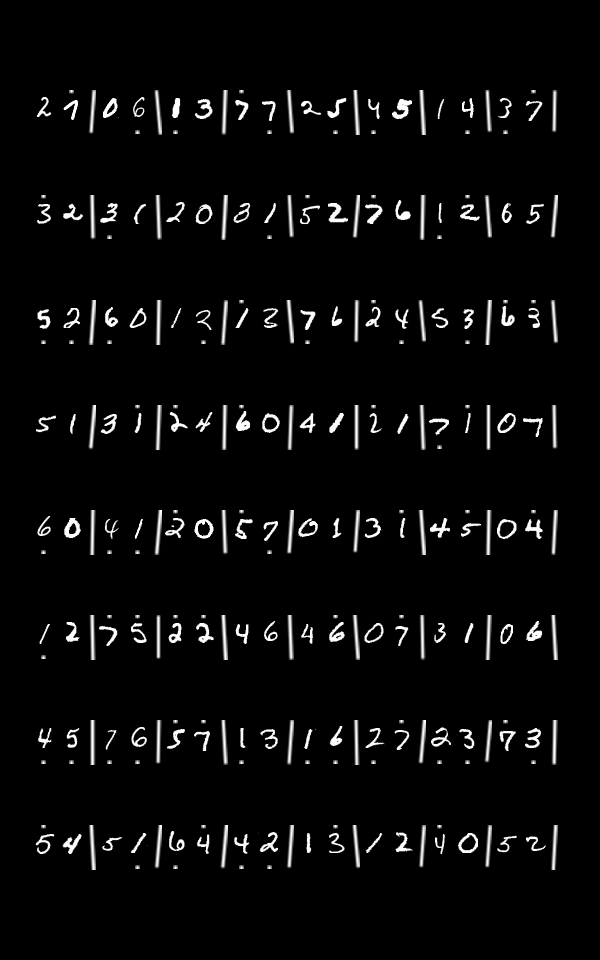 2 7 | 0 6 | 1 3 | 7 7 | 2 5 | 4 5 | 1 4 | 3 7 |
3 2 | 3 1 | 2 0 | 3 1 | 5 2 | 7 6 | 1 2 | 6 5 |
5 2 | 6 0 | 1 2 | 1 3 | 7 6 | 2 4 | 5 3 | 6 3 |
5 1 | 3 1 | 2 4 | 6 0 | 4 1 | 2 1 | 7 1 | 0 7 |
6 0 | 4 1 | 2 0 | 5 7 | 0 1 | 3 1 | 4 5 | 0 4 |
1 2 | 7 5 | 2 2 | 4 6 | 4 6 | 0 7 | 3 1 | 0 6 |
4 5 | 7 6 | 5 7 | 1 3 | 1 6 | 2 7 | 2 3 | 7 3 |
5 4 | 5 1 | 6 4 | 4 2 | 1 3 | 1 2 | 4 0 | 5 2 |